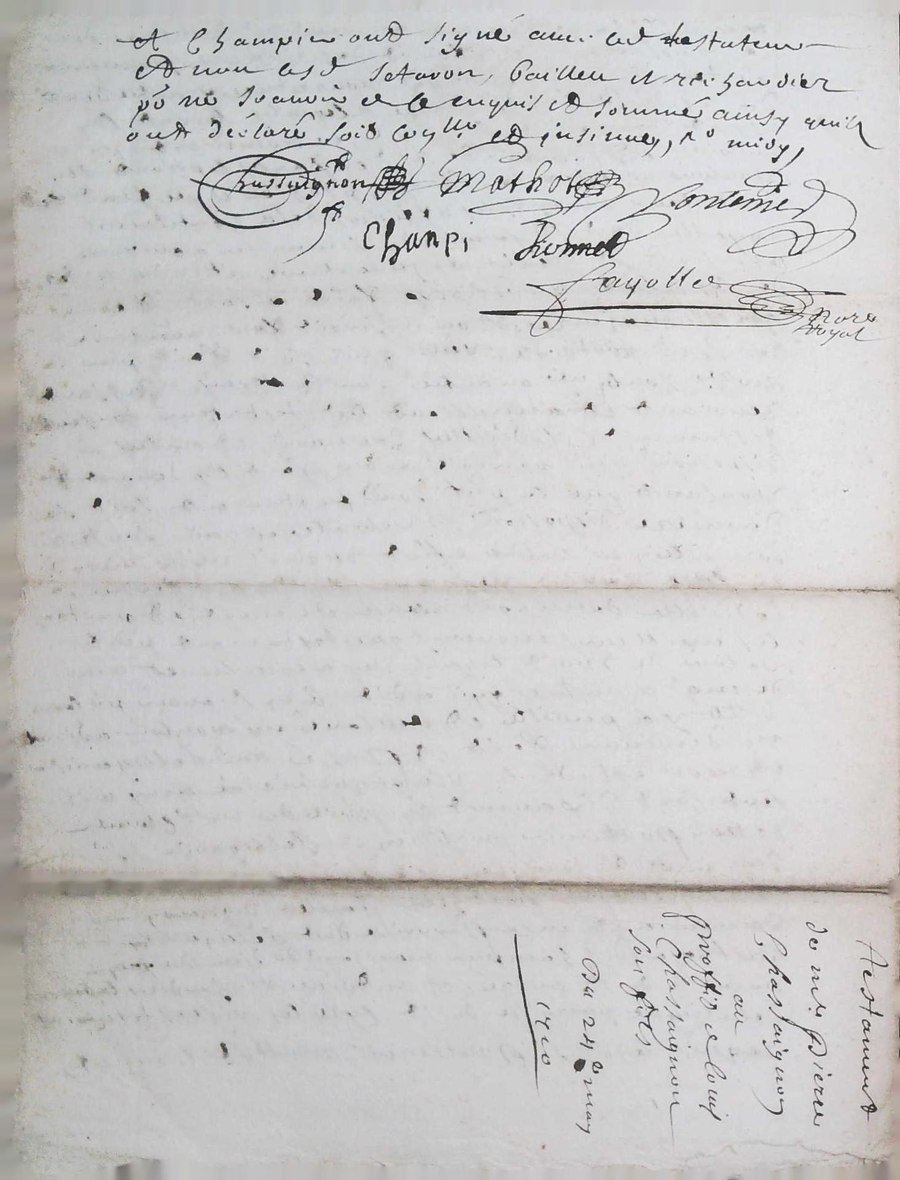 et Champier ont signé avec led testateur
et non lesd Setavon, Cailleu et Richardier
po ne scavoir de ce enquis et sommé ainsy quils
ont déclaré soit et insinué,
Chassaignon Mathot
Chanpi Thonnet
Fayolle
Nore
Royal
Testament
de mr Pierre
Chassaignon
au
proffit de louis
Chassaignon
son fils
Du 24 may
1710